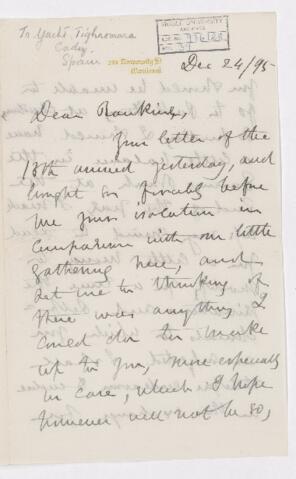 To Yacht Tighnamara
Cadiz,
Spain
McGILL UNIVERSITY
ARCHIVES
ACC. NO.
REF. 37
University St
Montreal
Dec 24/95
Dear Rankine,
Your letter of the
13th arrived yesterday, and
brought so forcibly before
me your isolation in
comparison with our little
gathering here, and
set me to thinking if
there was anything I
could do to make
up to you, more especially
in case, which I hope
however will not be so,